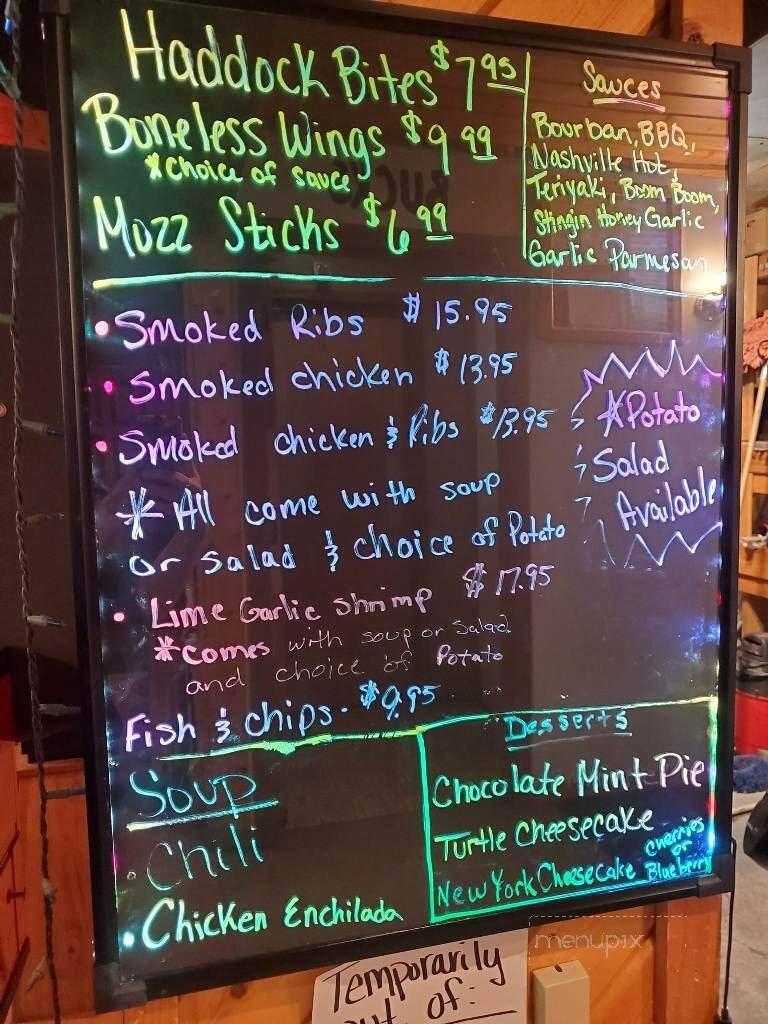 Haddock Bites $7.95
Boneless Wings $9.99
*Choice of sauce
Mozz Sticks $6.99
Sauces
Bourban, BBQ,
Nashville Hot,
Teriyaki, Boom Boom,
Stingin Honey Garlic
Garlic Parmesan
• Smoked Ribs $15.95
• Smoked chicken $13.95
• Smoked chicken & Ribs $13.95
* All come with soup
or salad & choice of Potato
*Potato
Salad
Available
• Lime Garlic shrimp $17.95
*comes with soup or salad
and choice of Potato
Fish & chips - $9.95
Soup
• Chili
• Chicken Enchilada
Desserts
Chocolate Mint Pie
Turtle Cheesecake
New York Cheesecake cherries or Blueberry
menupix
Temporarily
out of: